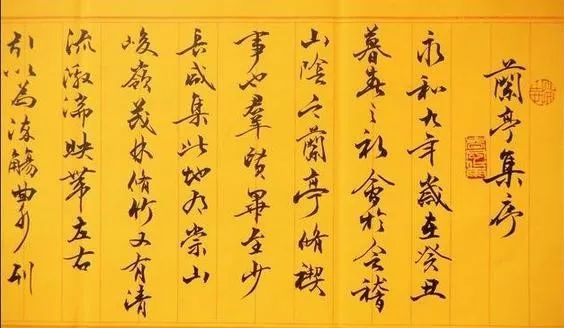 蘭亭集序
永和九年歲在癸丑
暮春之初會於會稽
山陰之蘭亭脩禊
事也羣賢畢至少
長咸集此地有崇山
峻嶺茂林脩竹又有清
流激湍映帶左右
引以為流觴曲水列